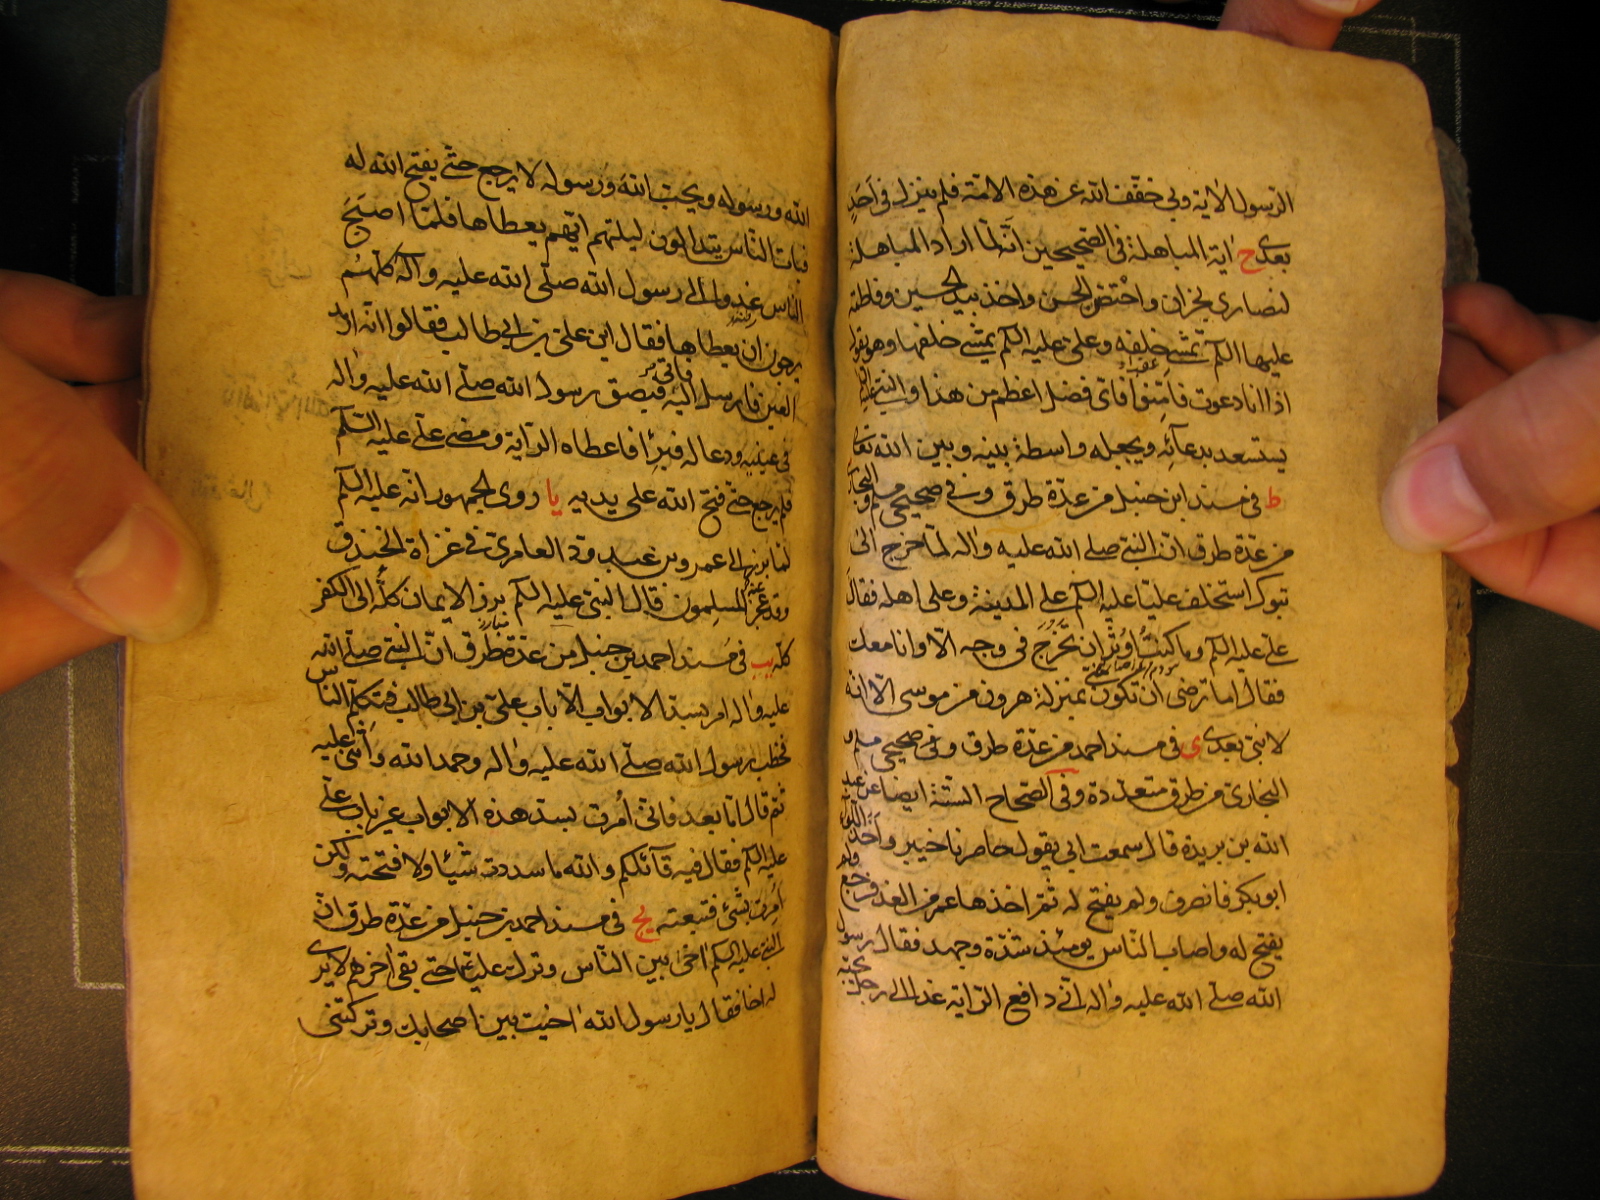 الرسول الاية وبي خفف الله عن هذه الامة فلم ينزل في احد
بعدي ح اية المباهلة في الصحيحين انه لما اراد المباهلة
لنصارى نجران واحتضن الحسن واخذ بيد الحسين وفاطمة
عليها السلم تمشي خلفه وعلي عليه السلم يمشي خلفها وهو يقول
اذا انا دعوت فامنوا فاي فضل اعظم من هذا والنبي
يستسعد بدعائه ويجعله واسطة بينه وبين الله تعا
ط في مسند ابن حنبل من عدة طرق وفي صحيحي مسلم والبخاري
من عدة طرق ان النبي صلى الله عليه واله لما خرج الى
تبوك استخلف عليا عليه السلم على المدينة وعلى اهله فقال
علي عليه السلم وما كنت اوثر ان تخرج في وجه الا وانا معك
فقال اما ترضى ان تكون مني بمنزلة هرون من موسى الا انه
لا نبي بعدي ي في مسند احمد من عدة طرق وفي صحيحي مسلم و
البخاري من طرق متعددة وفي الصحاح الستة ايضا عن عبد
الله بن بريدة قال سمعت ابي يقول حاصرنا خيبر واخذ اللواء
ابو بكر فانصرف ولم يفتح له ثم اخذها عمر من الغد فرجع ولم
يفتح له واصاب الناس يومئذ شدة وجهد فقال رسول
الله صلى الله عليه واله اني دافع الراية غدا الى رجل يحبه
الله ورسوله ويحب الله ورسوله لا يرجع حتى يفتح الله له
فبات الناس يتداولون ليلتهم ايهم يعطاها فلما اصبح
الناس غدوا الى رسول الله صلى الله عليه واله كلهم
يرجون ان يعطاها فقال اين علي بن ابي طالب فقالوا انه ارمد
العين فارسل اليه فاتى فبصق رسول الله صلى الله عليه واله
في عينيه ودعا له فبرئ فاعطاه الراية ومضى علي عليه السلم
فلم يرجع حتى فتح الله على يديه يا روى الجمهور انه عليه السلم
لما برز الى عمرو بن عبد ود العامري في غزاة الخندق
وقد عجز عنه المسلمون قال النبي عليه السلم برز الايمان كله الى الكفر
كله يب في مسند احمد بن حنبل من عدة طرق ان النبي صلى الله
عليه واله امر بسد الابواب الا باب علي بن ابي طالب فتكلم الناس
فخطب رسول الله صلى الله عليه واله وحمد الله واثنى عليه
ثم قال اما بعد فاني امرت بسد هذه الابواب غير باب علي
عليه السلم فقال فيه قائلكم والله ما سددت شيئا ولا فتحته ولكن
امرت بشئ فتبعته يج في مسند احمد بن حنبل من عدة طرق ان
النبي عليه السلم اخى بين الناس وترك عليا حتى بقي اخرهم لا يرى
له اخا فقال يا رسول الله اخيت بين اصحابك وتركتني